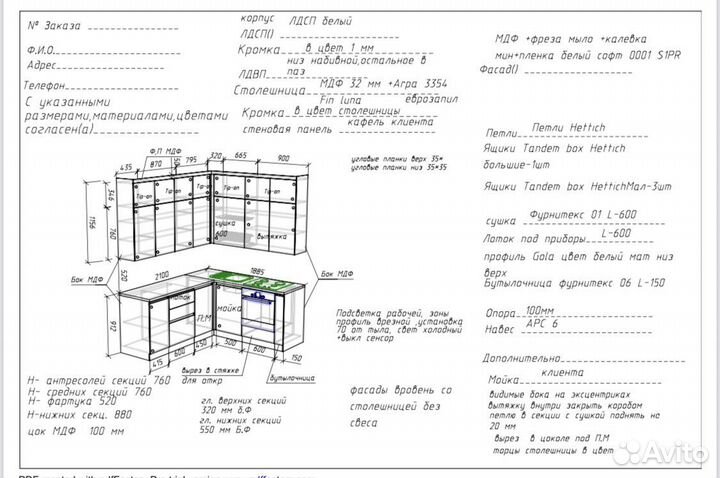 № Заказа
Ф.И.О.
Адрес
Телефон
С указанными
размерами,материалами,цветами
согласен(а)
корпус ЛДСП белый
ЛДСП()
Кромка в цвет 1 мм
низ надивной,остальное в
ЛДВП паз
Столешница МДФ 32 мм +Агра 3354
Fin luna еврозапил
Кромка в цвет столешницы
стеновая панель кафель клиента
МДФ +фреза мыло +калевка
мин+пленка белый софт 0001 S1PR
Фасад()
Петли Петли Hettich
Ящики Tandem box Hettich
большие-1шт
Ящики Tandem box HettichМал-3шт
сушка Фурнитекс 01 L-600
Лоток под приборы L-600
профиль Gola цвет белый мат низ
верх
Бутылочница фурнитекс 06 L-150
Опора 100мм
Навес АРС 6
Дополнительно
Мойка клиента
видимые бока на эксцентриках
вытяжку внутри закрыть коробом
петлю в секции с сушкой поднять на
20 мм
вырез в цоколе под П.М
торцы столешницы в цвет
угловые планки верх 35*
угловые планки низ 35*35
Ф.П МДФ
435 870 50 795 320 665 900
Tip-on Tip-on Tip-on Tip-on
346
1156
760
сушка
600
вытяжка
520
Бок МДФ
2100
1885
Бок МДФ
лоток
мойка
П.М
912
415 600 450 500 600 150
вырез в стяжке
для откр
бутылочница
Подсветка рабочей, зоны
профиль врезной ,установка
70 от тыла, свет холодный
+выкл сенсор
Н- антресолей секций 760
Н- средних секций 760
Н- фартука 520
Н-нижних секц. 880
цок МДФ 100 мм
гл. верхних секций
320 мм б.Ф
гл. нижних секций
550 мм Б.Ф
фасады вровень со
столешницей без
свеса
Avito